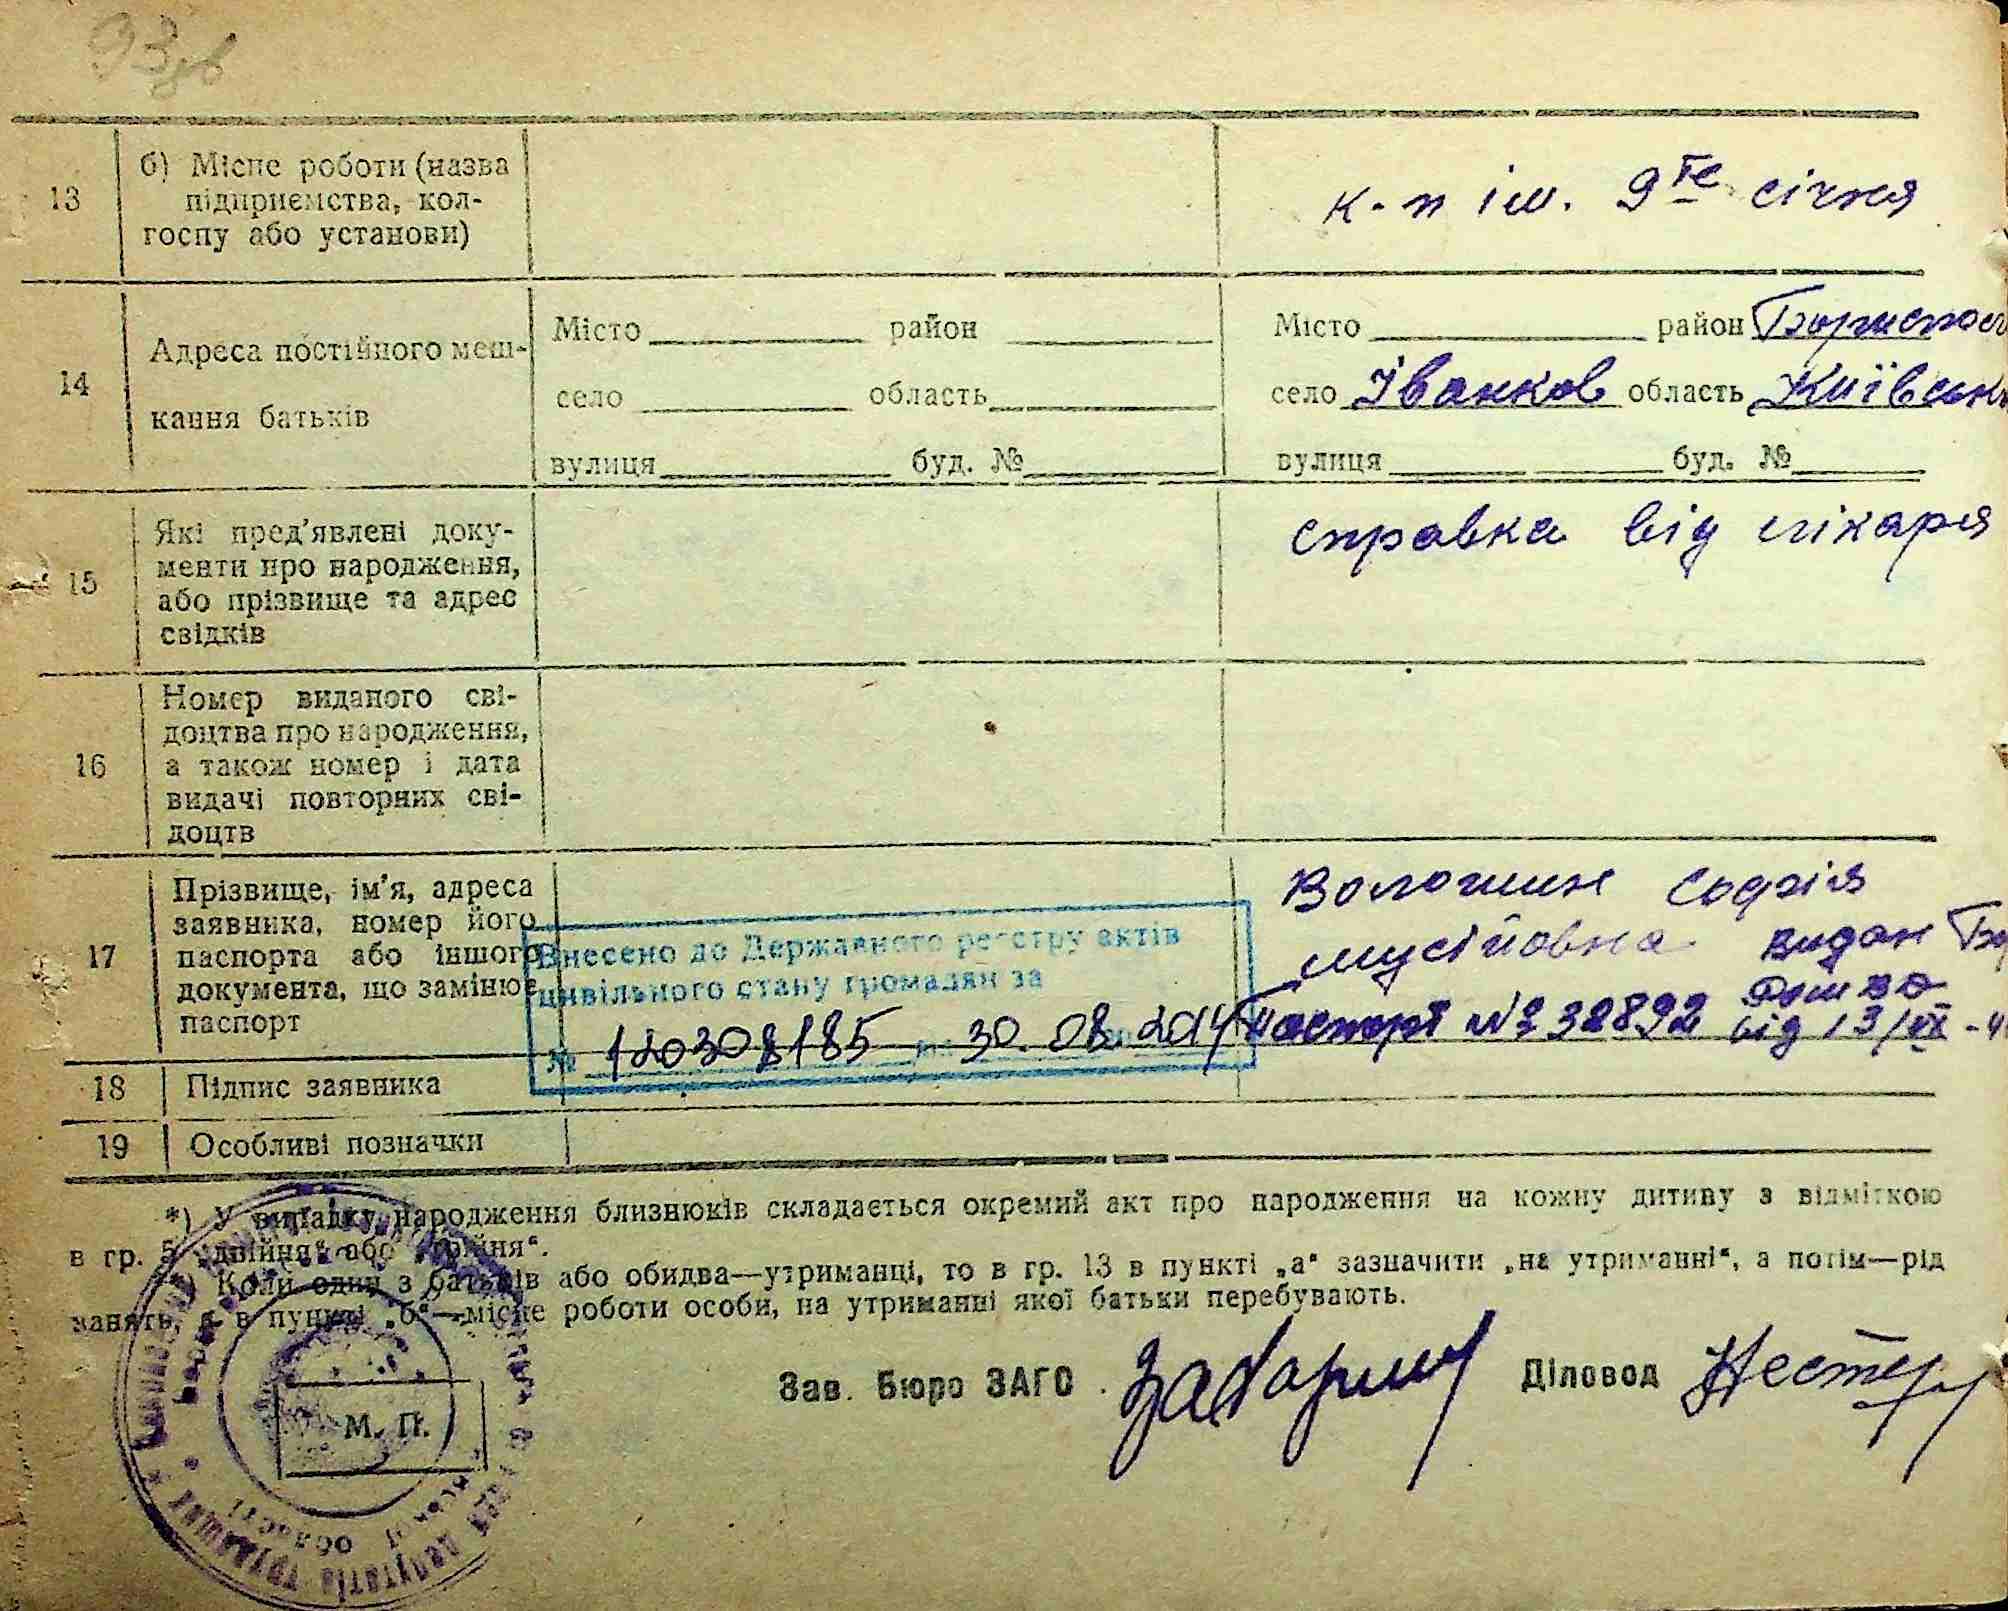 93зв
13
б) Місце роботи (назва
підприємства, кол-
госпу або установи)
к-п ім. 9те січня
14
Адреса постійного меш-
кання батьків
Місто район
село область
вулиця буд. №
Місто район Бориспол
село Іванков область Київськ
вулиця буд. №
15
Які пред'явлені доку-
менти про народження,
або прізвище та адрес
свідків
справка від лікаря
16
Номер виданого сві-
доцтва про народження,
а також номер і дата
видачі повторних сві-
доцтв
17
Прізвище, ім'я, адреса
заявника, номер його
паспорта або іншого
документа, що замінює
паспорт
Внесено до Державного реєстру актів
цивільного стану громадян за
№ 120308185 30.08.2014
Волошин Софія
мусійовна видан Бо
Паспорт № 332892 від 13/VI-4
18
Підпис заявника
19
Особливі позначки
*) У випадку народження близнюків складається окремий акт про народження на кожну дитину з відміткою
в гр. 5 „двійня“ або „трійня“.
*) Коли один з батьків або обидва—утриманці, то в гр. 13 в пункті „а“ зазначити „на утриманні“, а потім—рід
занять, а в пункті „б“—місце роботи особи, на утриманні якої батьки перебувають.
Зав. Бюро ЗАГС
Діловод
М. П.
депутатів трудящих
області